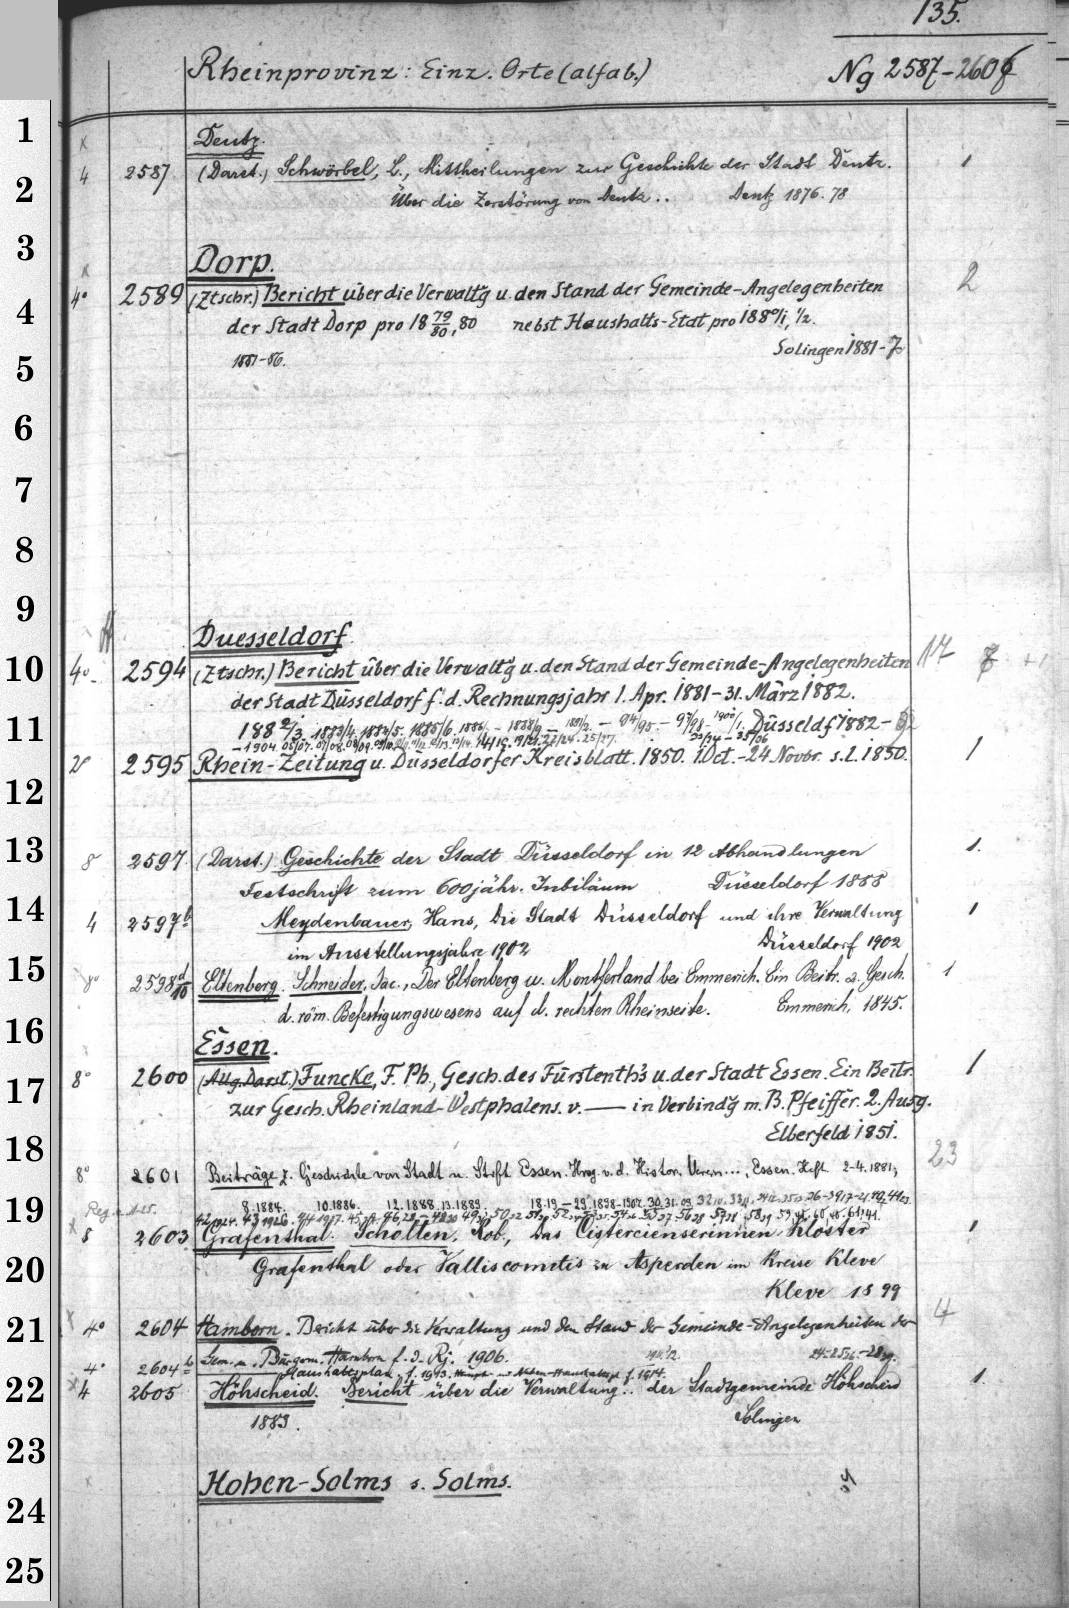 135.
Rheinprovinz: Einz. Orte (alfab.) Ng 2587-2606
1
Deutz.
4 2587 (Darst.) Schwörbel, L., Mittheilungen zur Geschichte der Stadt Deutz. 1
2
Über die Zerstörung von Deutz.. Deutz 1876.78
3
Dorp.
4° 2589 (Ztschr.) Bericht über die Verwalt'g u. den Stand der Gemeinde-Angelegenheiten 2
4
der Stadt Dorp pro 18 79/80, 80 nebst Haushalts-Etat pro 188 0/1, 1/2.
Solingen 1881-7
5
1881-86.
6
7
8
9
Duesseldorf
10
4° 2594 (Ztschr.) Bericht über die Verwalt'g u. den Stand der Gemeinde-Angelegenheiten 17
der Stadt Düsseldorf f. d. Rechnungsjahr 1. Apr. 1881-31. März 1882.
11
188 2/3, 1883/4. 1884/5. 1885/6. Düsseldf 1882-
2° 2595 Rhein-Zeitung u. Düsseldorfer Kreisblatt. 1850. 1. Oct.-24 Novbr. s. l. 1850. 1
12
13
8 2597 (Darst.) Geschichte der Stadt Düsseldorf in 12 Abhandlungen 1.
Festschrift zum 600jähr. Jubiläum Düsseldorf 1888
14
4 2597b Meydenbauer, Hans, Die Stadt Düsseldorf und ihre Verwaltung 1
im Ausstellungsjahre 1902 Düsseldorf 1902
15
8° 2598d/10 Eltenberg. Schneider, Jac., Der Eltenberg u. Montferland bei Emmerich. Ein Beitr. z. Gesch. 1
d. röm. Befestigungswesens auf d. rechten Rheinseite. Emmerich, 1845.
16
Essen.
17
8° 2600 (Allg. Darst.) Funcke, F. Ph., Gesch. des Fürstenth's u. der Stadt Essen. Ein Beitr. 1
zur Gesch. Rheinland-Westphalens. v. — in Verbind'g m. B. Pfeiffer. 2. Ausg.
Elberfeld 1851.
18
23
8° 2601 Beiträge z. Geschichte von Stadt u. Stift Essen. Hrsg. v. d. Histor. Verein..., Essen. Heft 2-4. 1881,
19
8. 1884. 10. 1886. 12. 1888. 13. 1889.
8 2603 Grafenthal. Scholten, Rob., Das Cistercienserinnen-Kloster 1
20
Grafenthal oder Valliscomitis zu Asperden im Kreise Kleve
Kleve 1899
21
4° 2604 Hamborn. Bericht über die Verwaltung und den Stand der Gemeinde-Angelegenheiten der 4
Gem. u. Bürgerm. Hamborn f. d. Rj. 1906.
4° 2604b Haushaltsplan f. 1913.
22
4 2605 Höhscheid. Bericht über die Verwaltung.. der Stadtgemeinde Höhscheid 1.
1883. Solingen
23
Hohen-Solms s. Solms.
24
25